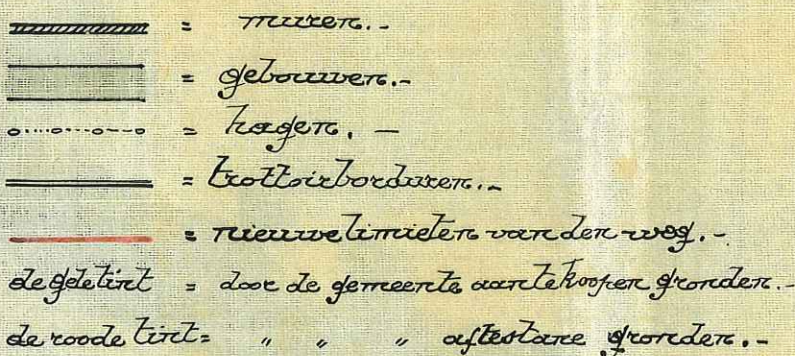 = muren.-
= gebouwen.-
= hagen. -
= trottoirborduren.-
= nieuwe limieten van den weg.-
de gele tint = door de gemeente aan te koopen gronden.-
de roode tint = " " " af te stane gronden.-